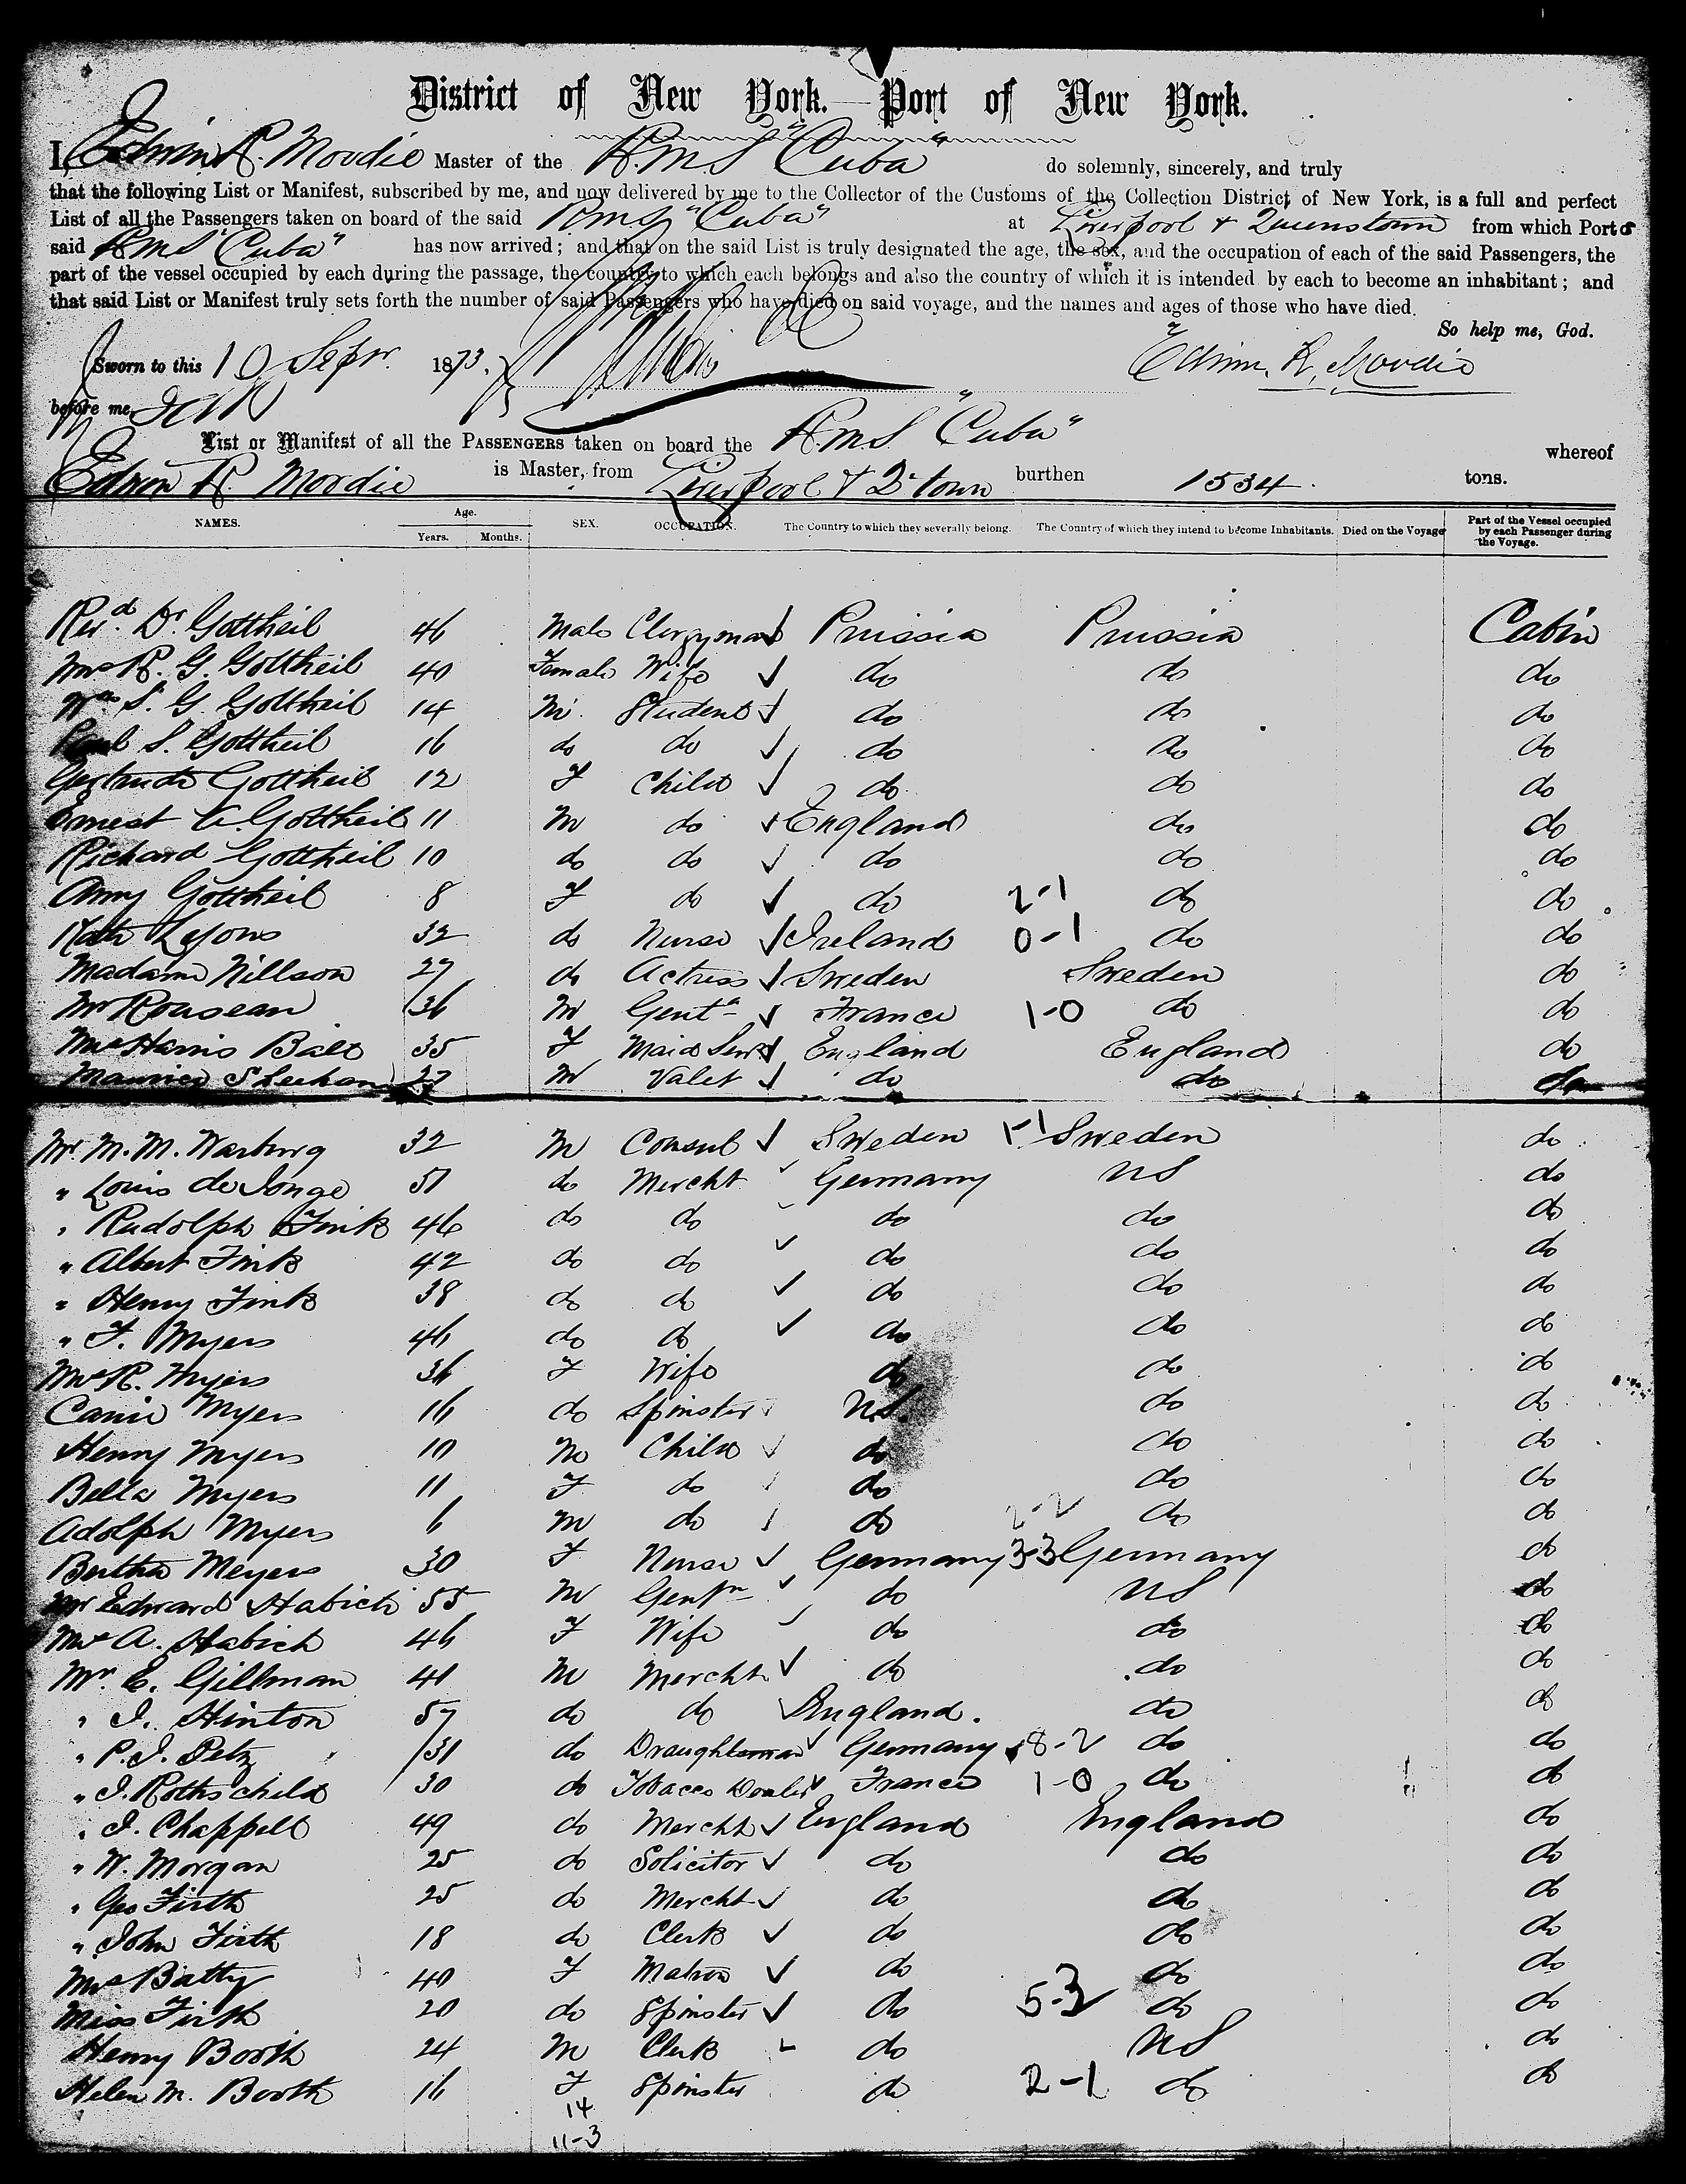 District of New York.—Port of New York.
I, Edwin R. Moodie Master of the R.M.S "Cuba" do solemnly, sincerely, and truly
that the following List or Manifest, subscribed by me, and now delivered by me to the Collector of the Customs of the Collection District of New York, is a full and perfect
List of all the Passengers taken on board of the said RMS "Cuba" at Liverpool & Queenstown from which Ports
said RMS "Cuba" has now arrived; and that on the said List is truly designated the age, the sex, and the occupation of each of the said Passengers, the
part of the vessel occupied by each during the passage, the country to which each belongs and also the country of which it is intended by each to become an inhabitant; and
that said List or Manifest truly sets forth the number of said Passengers who have died on said voyage, and the names and ages of those who have died.
So help me, God.
Sworn to this 10 Sepr. 1873. Edwin. R. Moodie
before me,
List or Manifest of all the PASSENGERS taken on board the R.M.S "Cuba" whereof
Edwin R. Moodie is Master, from Liverpool & Q'town burthen 1534. tons.
NAMES. Age. Years. Months. SEX. OCCUPATION. The Country to which they severally belong. The Country of which they intend to become Inhabitants. Died on the Voyage Part of the Vessel occupied by each Passenger during the Voyage.
Revd. Dr. Gottheil 46 Male Clergyman Prussia Prussia Cabin
Mrs R. G. Gottheil 40 Female Wife do do do
Wm S. G. Gottheil 14 M. Student do do do
Paul S. Gottheil 16 do do do do do
Gertrude Gottheil 12 F Child do do do
Ernest V. Gottheil 11 M do England do do
Richard Gottheil 10 do do do do do
Amy Gottheil 8 F do do 2-1 do do
Kate Lyons 32 do Nurse Ireland 0-1 do do
Madame Nillson 27 do Actress Sweden Sweden do
Mr Rouseau 36 M Gentn France 1-0 do do
Mrs Harris Balt 35 F Maid Servt England England do
Maurice Sheehan M Valet do do do
Mr. M. M. Warburg 32 M Consul Sweden 1-1 Sweden do
" Louis de Jonge 51 do Mercht Germany US do
" Rudolph Fink 46 do do do do do
" Albert Fink 42 do do do do do
" Henry Fink 38 do do do do do
" F. Myers 46 do do do do do
Mrs R. Myers 36 F Wife do do do
Carrie Myers 16 do Spinster U.S. do do
Henry Myers 10 M Child do do do
Bella Myers 11 F do do do do
Adolph Myers 6 M do do 2-2 do do
Bertha Meyers 30 F Nurse Germany 3-3 Germany do
Mr Edward Habich 55 M Gentn do US do
Mrs A. Habich 46 F Wife do do do
Mr. E. Gillman 41 M Mercht do do do
" I. Hinton 57 do do England. do do
" P. I. Petz 31 do Draughtsman Germany 8-2 do do
" I. Rothschild 30 do Tobacco Dealer France 1-0 do do
" I. Chappell 49 do Mercht England England do
" W. Morgan 25 do Solicitor do do do
" Geo Firth 25 do Mercht do do do
" John Firth 18 do Clerk do do do
Mrs Batty 40 F Matron do do do
Miss Firth 20 do Spinster do 5-3 do do
Henry Booth 24 M Clerk do US do
Helen M. Booth 16 F Spinster do 2-1 do do
14
11-3